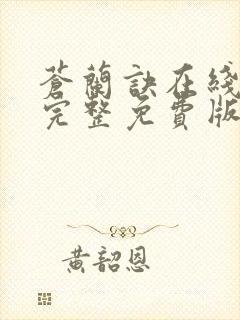 蒼蘭訣在綫
完整免費版
黄韶恩